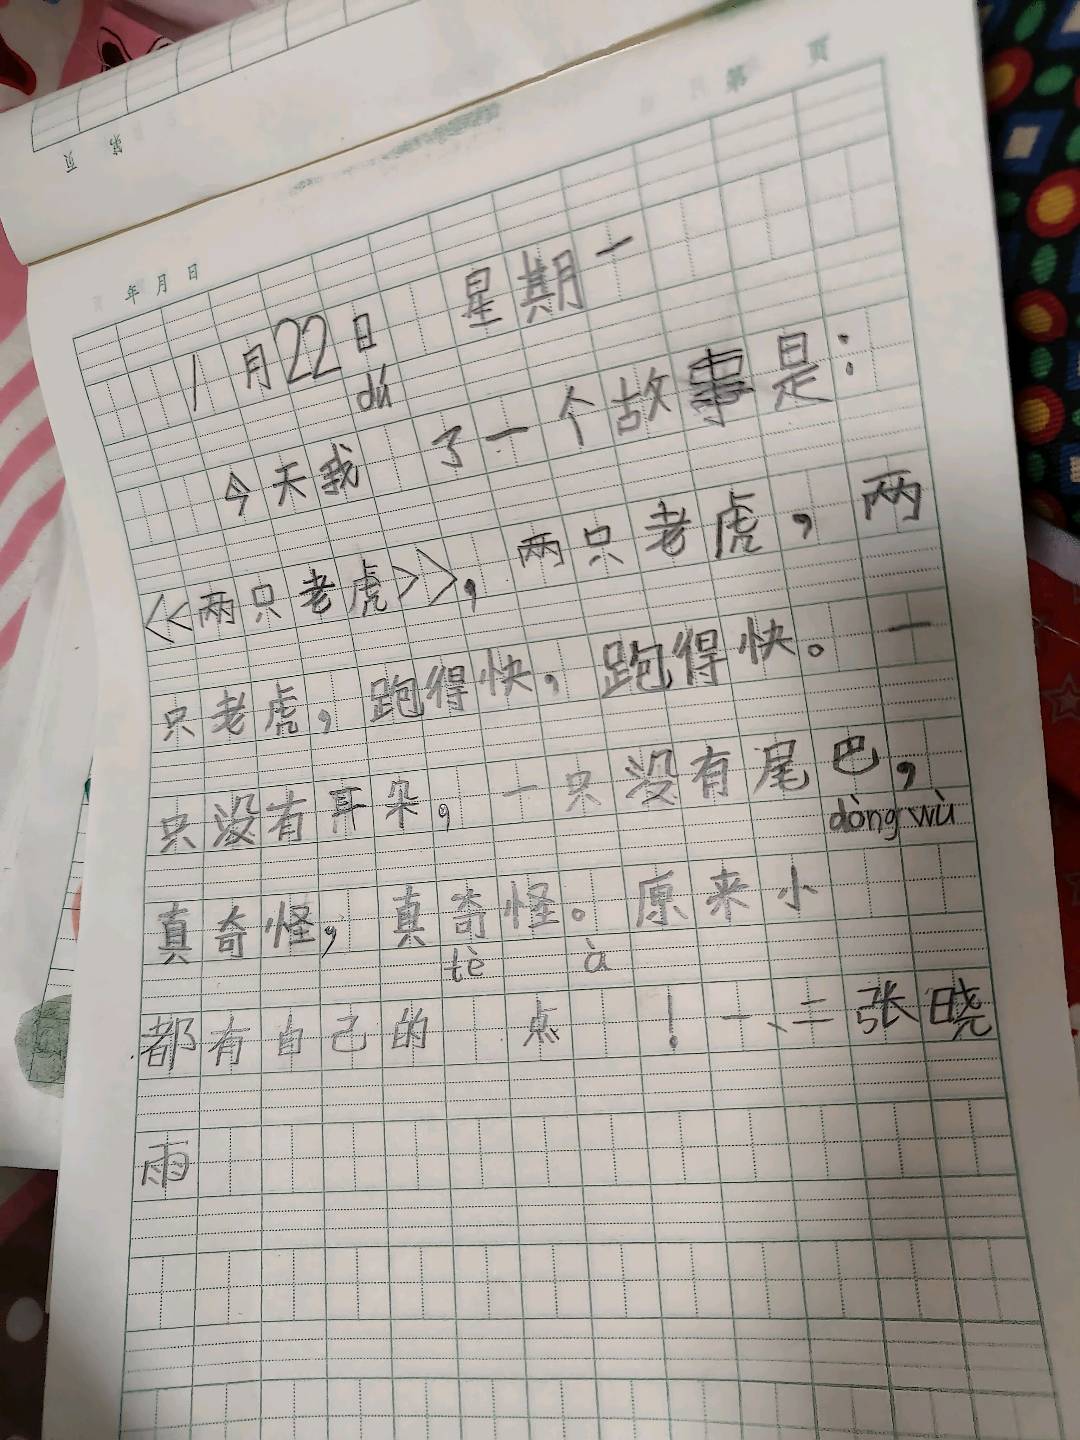 页 第
第 页
年 月 日
1月22日 星期一
dú
今天我 了一个故事是：
<<两只老虎>>，两只老虎，两
只老虎，跑得快，跑得快。一
只没有耳朵，一只没有尾巴，
dòng wù
真奇怪，真奇怪。原来小
tè à
都有自己的 点 ！一、二张晓
雨